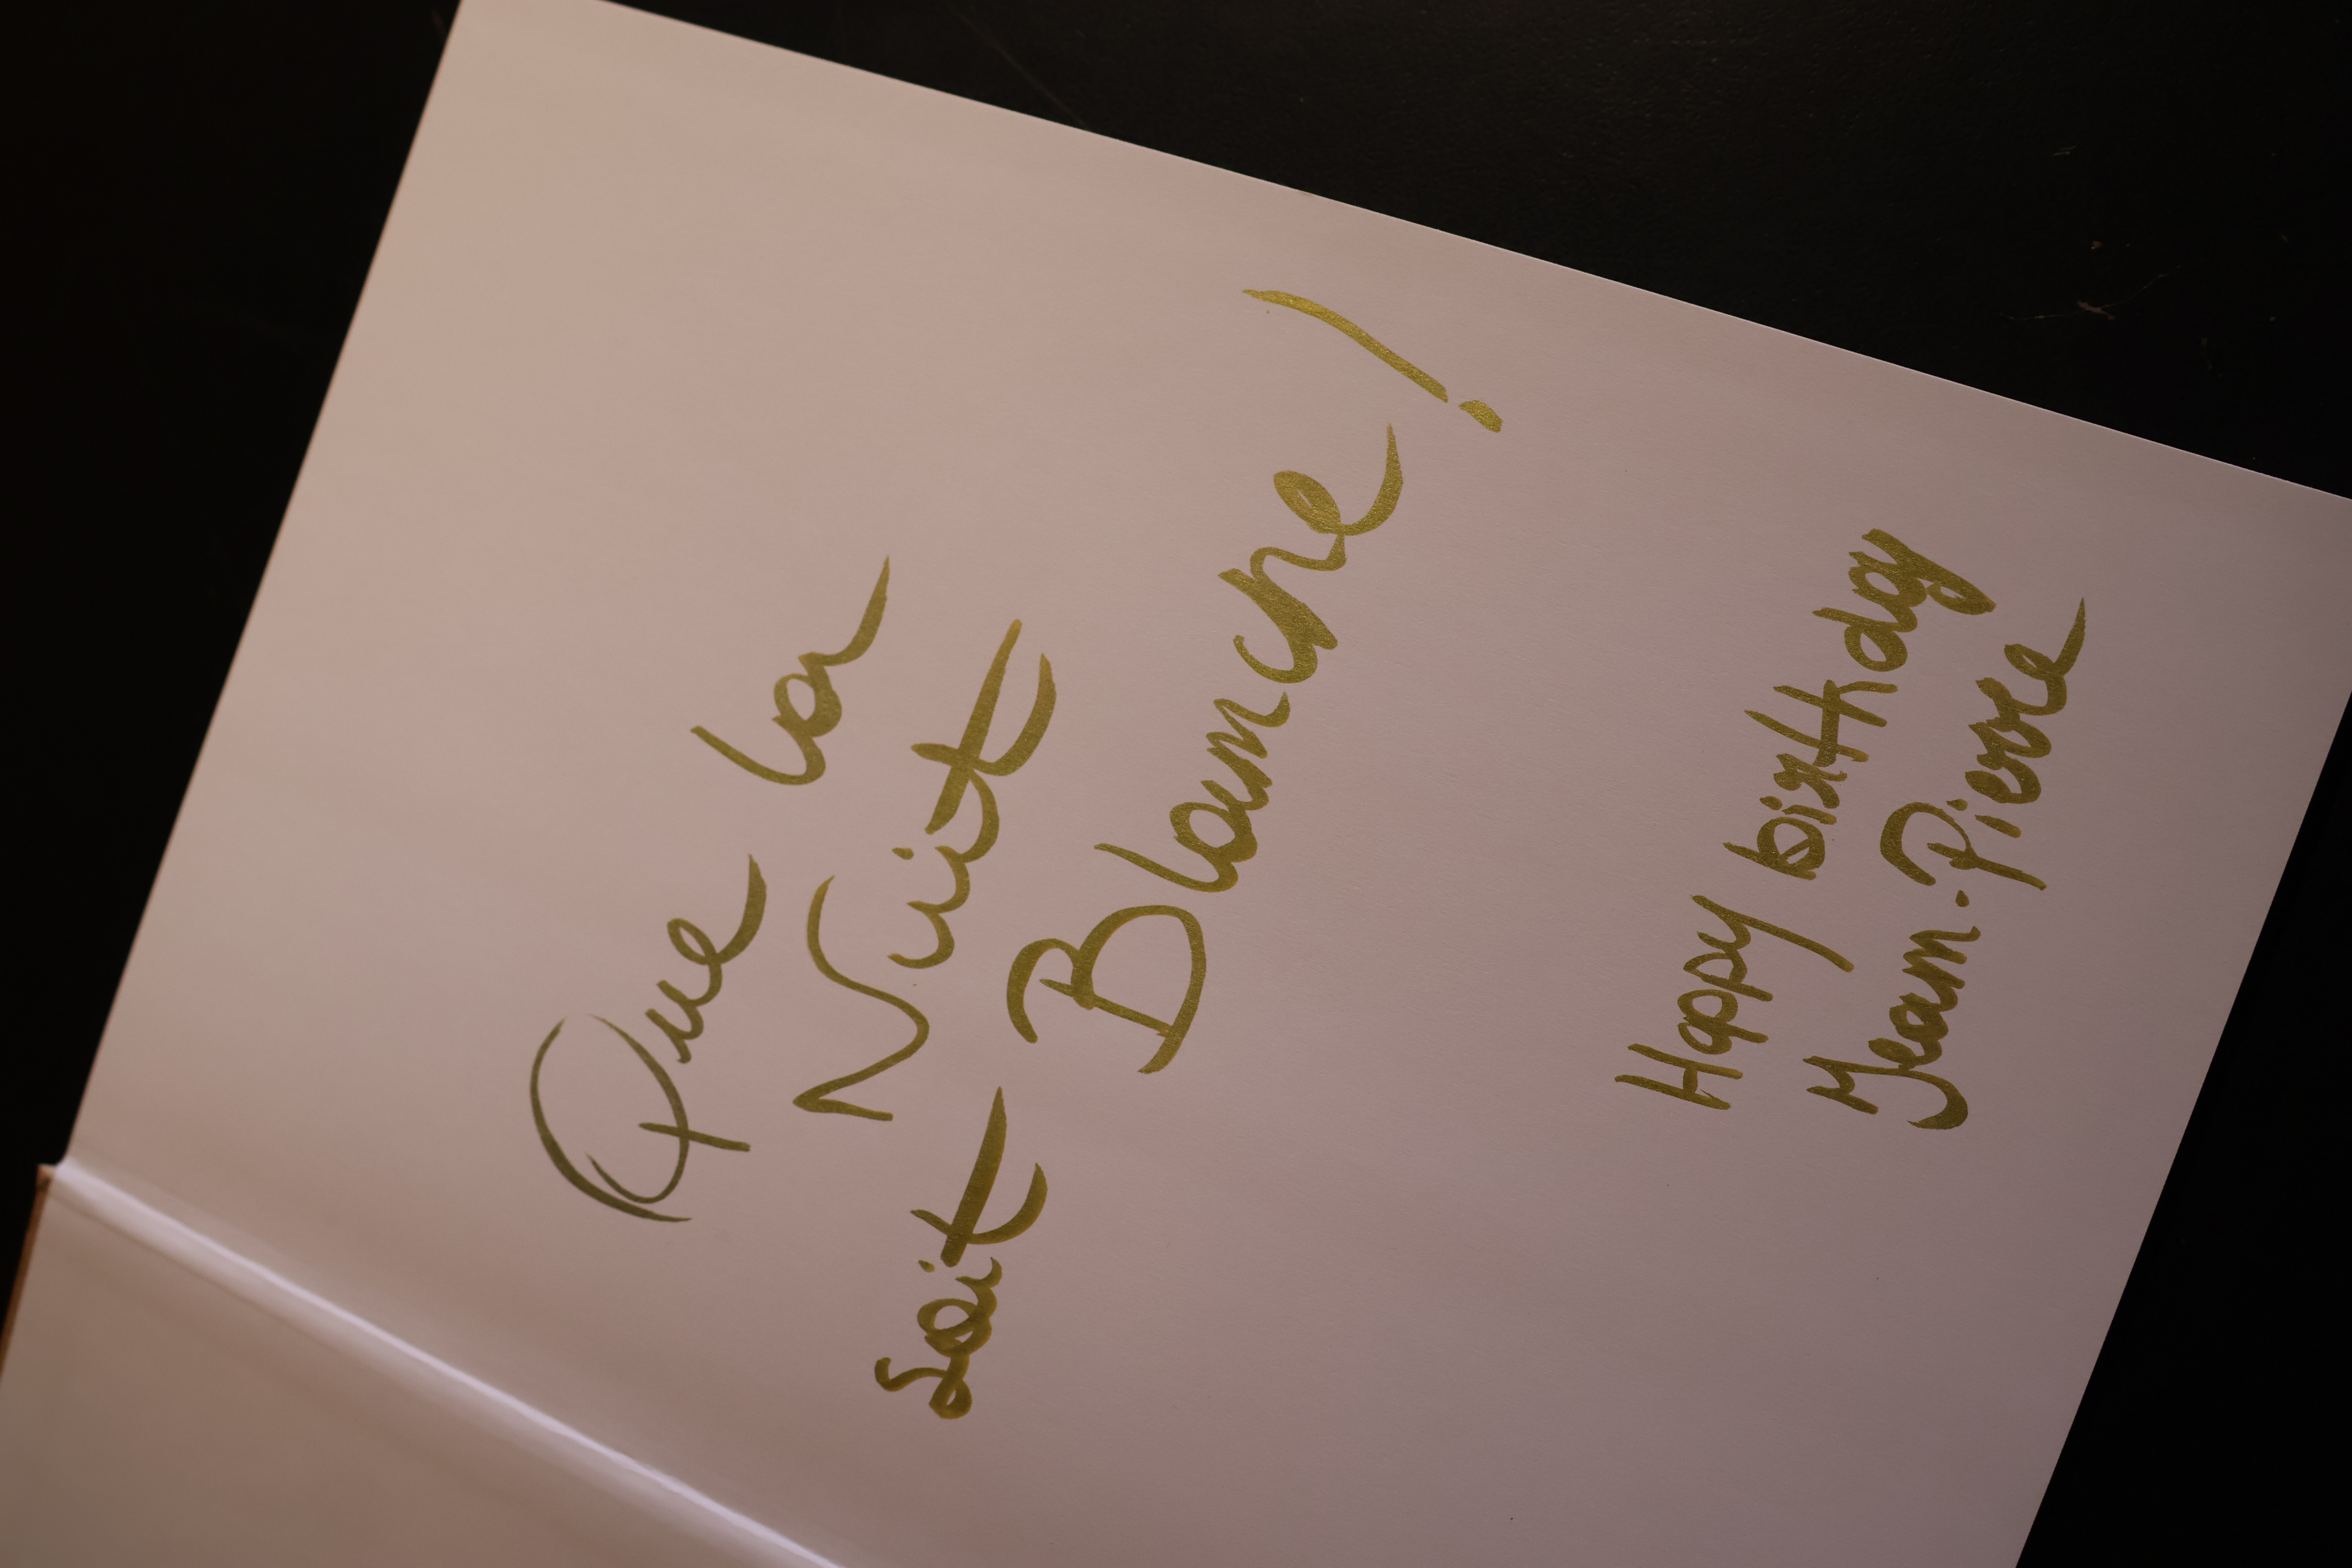 Que la
Nuit
soit Blanche!
Happy birthday
Jean-Pierre